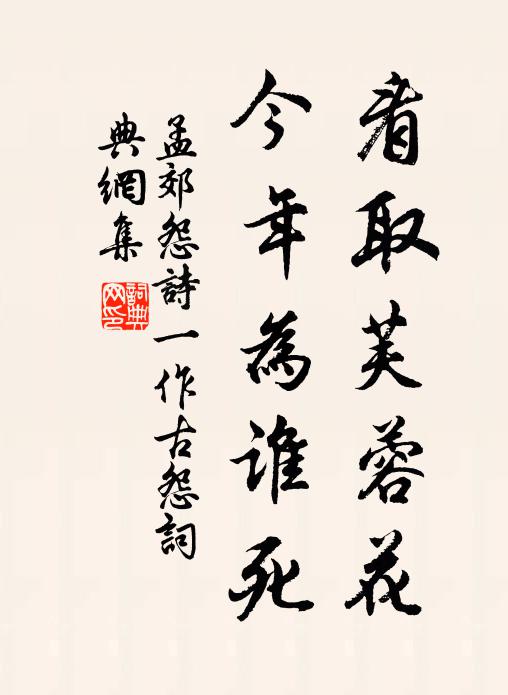 看取芙蓉花
今年為誰死
孟郊怨詩一作古怨詞
典網集
詞典网印